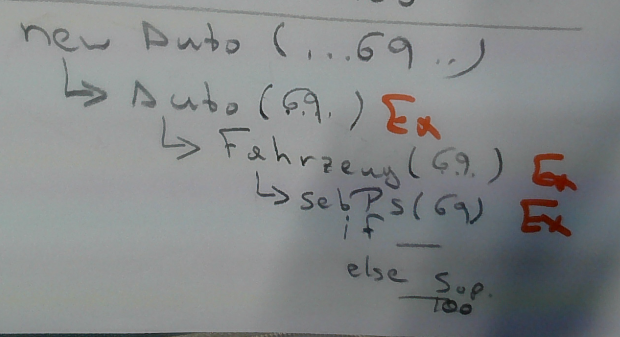 new Auto (...69..)
↳ Auto (69.) Ex
↳ Fahrzeug (69.) Ex
↳ setPS (69) Ex
if __
else S.o.p.
100